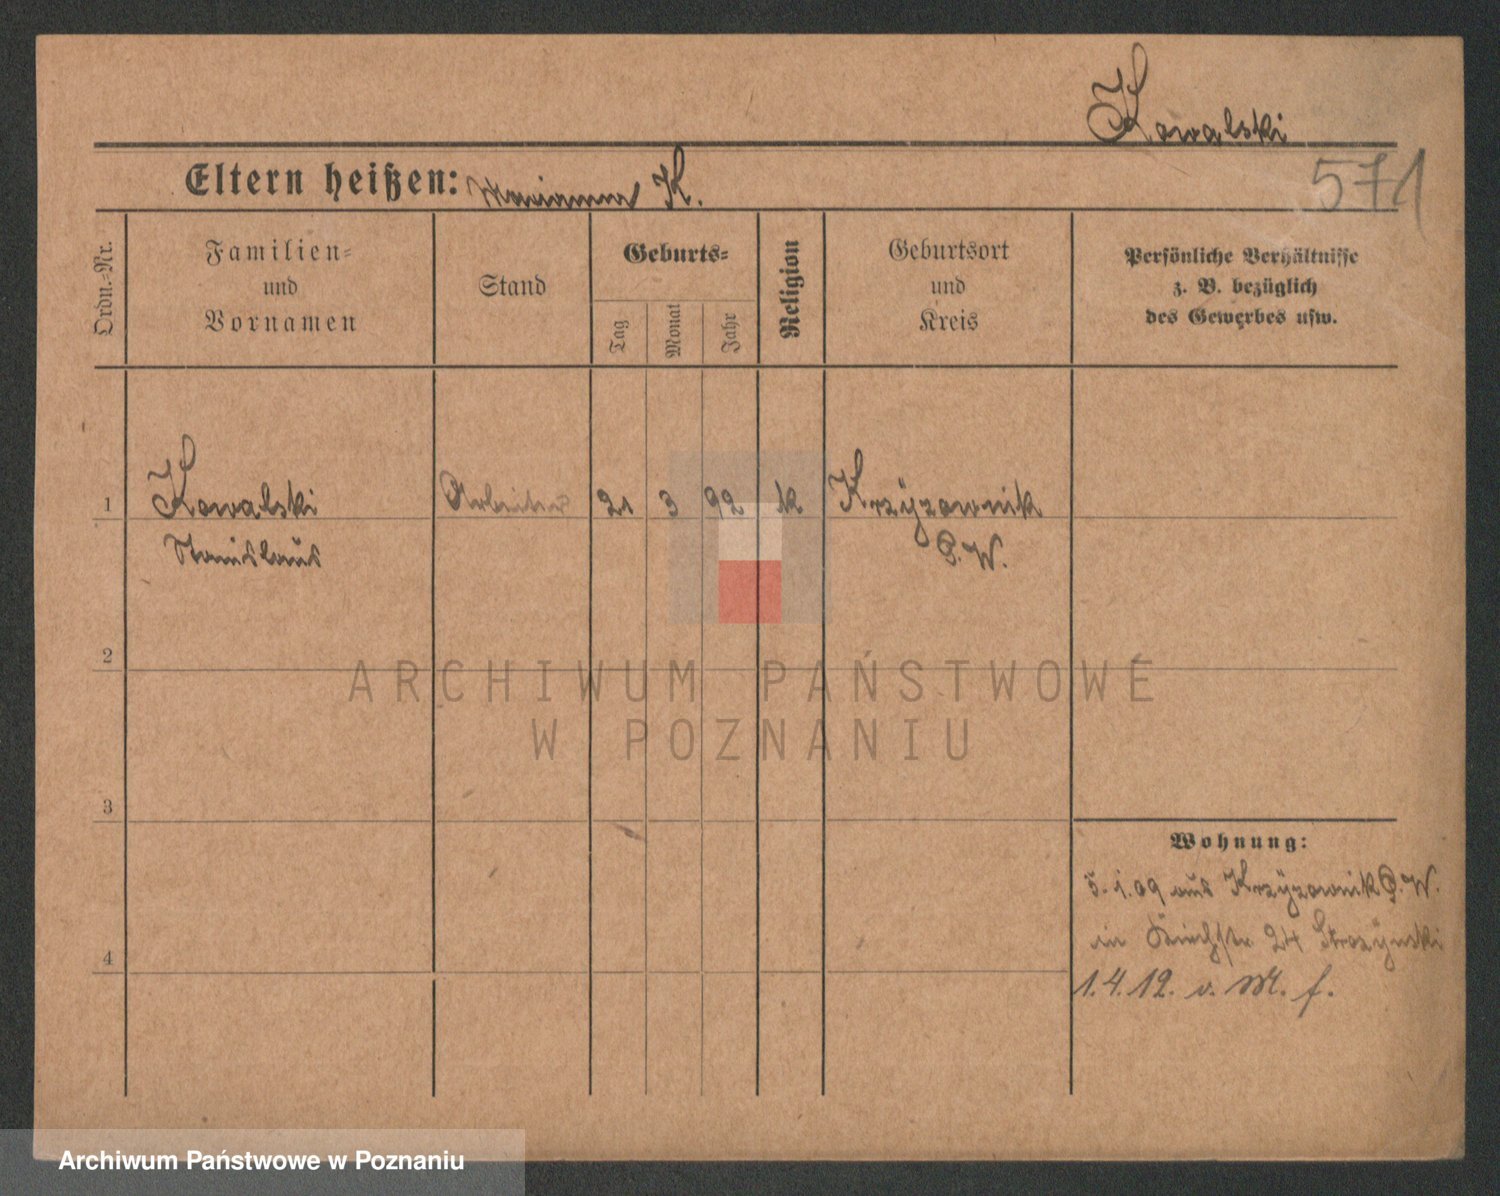 Kowalski
571
Eltern heißen: Marianna K.
Ordn.-Nr.
Familien-
und
Vornamen
Stand
Geburts-
Tag
Monat
Jahr
Religion
Geburtsort
und
Kreis
Persönliche Verhältnisse
z. B. bezüglich
des Gewerbes usw.
1 Kowalski Arbeiter 21 3 92 k Krzyżownik
Stanislaus P. W.
2
ARCHIWUM PAŃSTWOWE
W POZNANIU
3
Wohnung:
5.1.09 aus Krzyżownik P. W.
in Kirchstr 24
4
1.4.12. v. M. f.
Archiwum Państwowe w Poznaniu